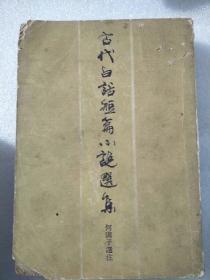 古代白話短篇小說選集
何滿子選注